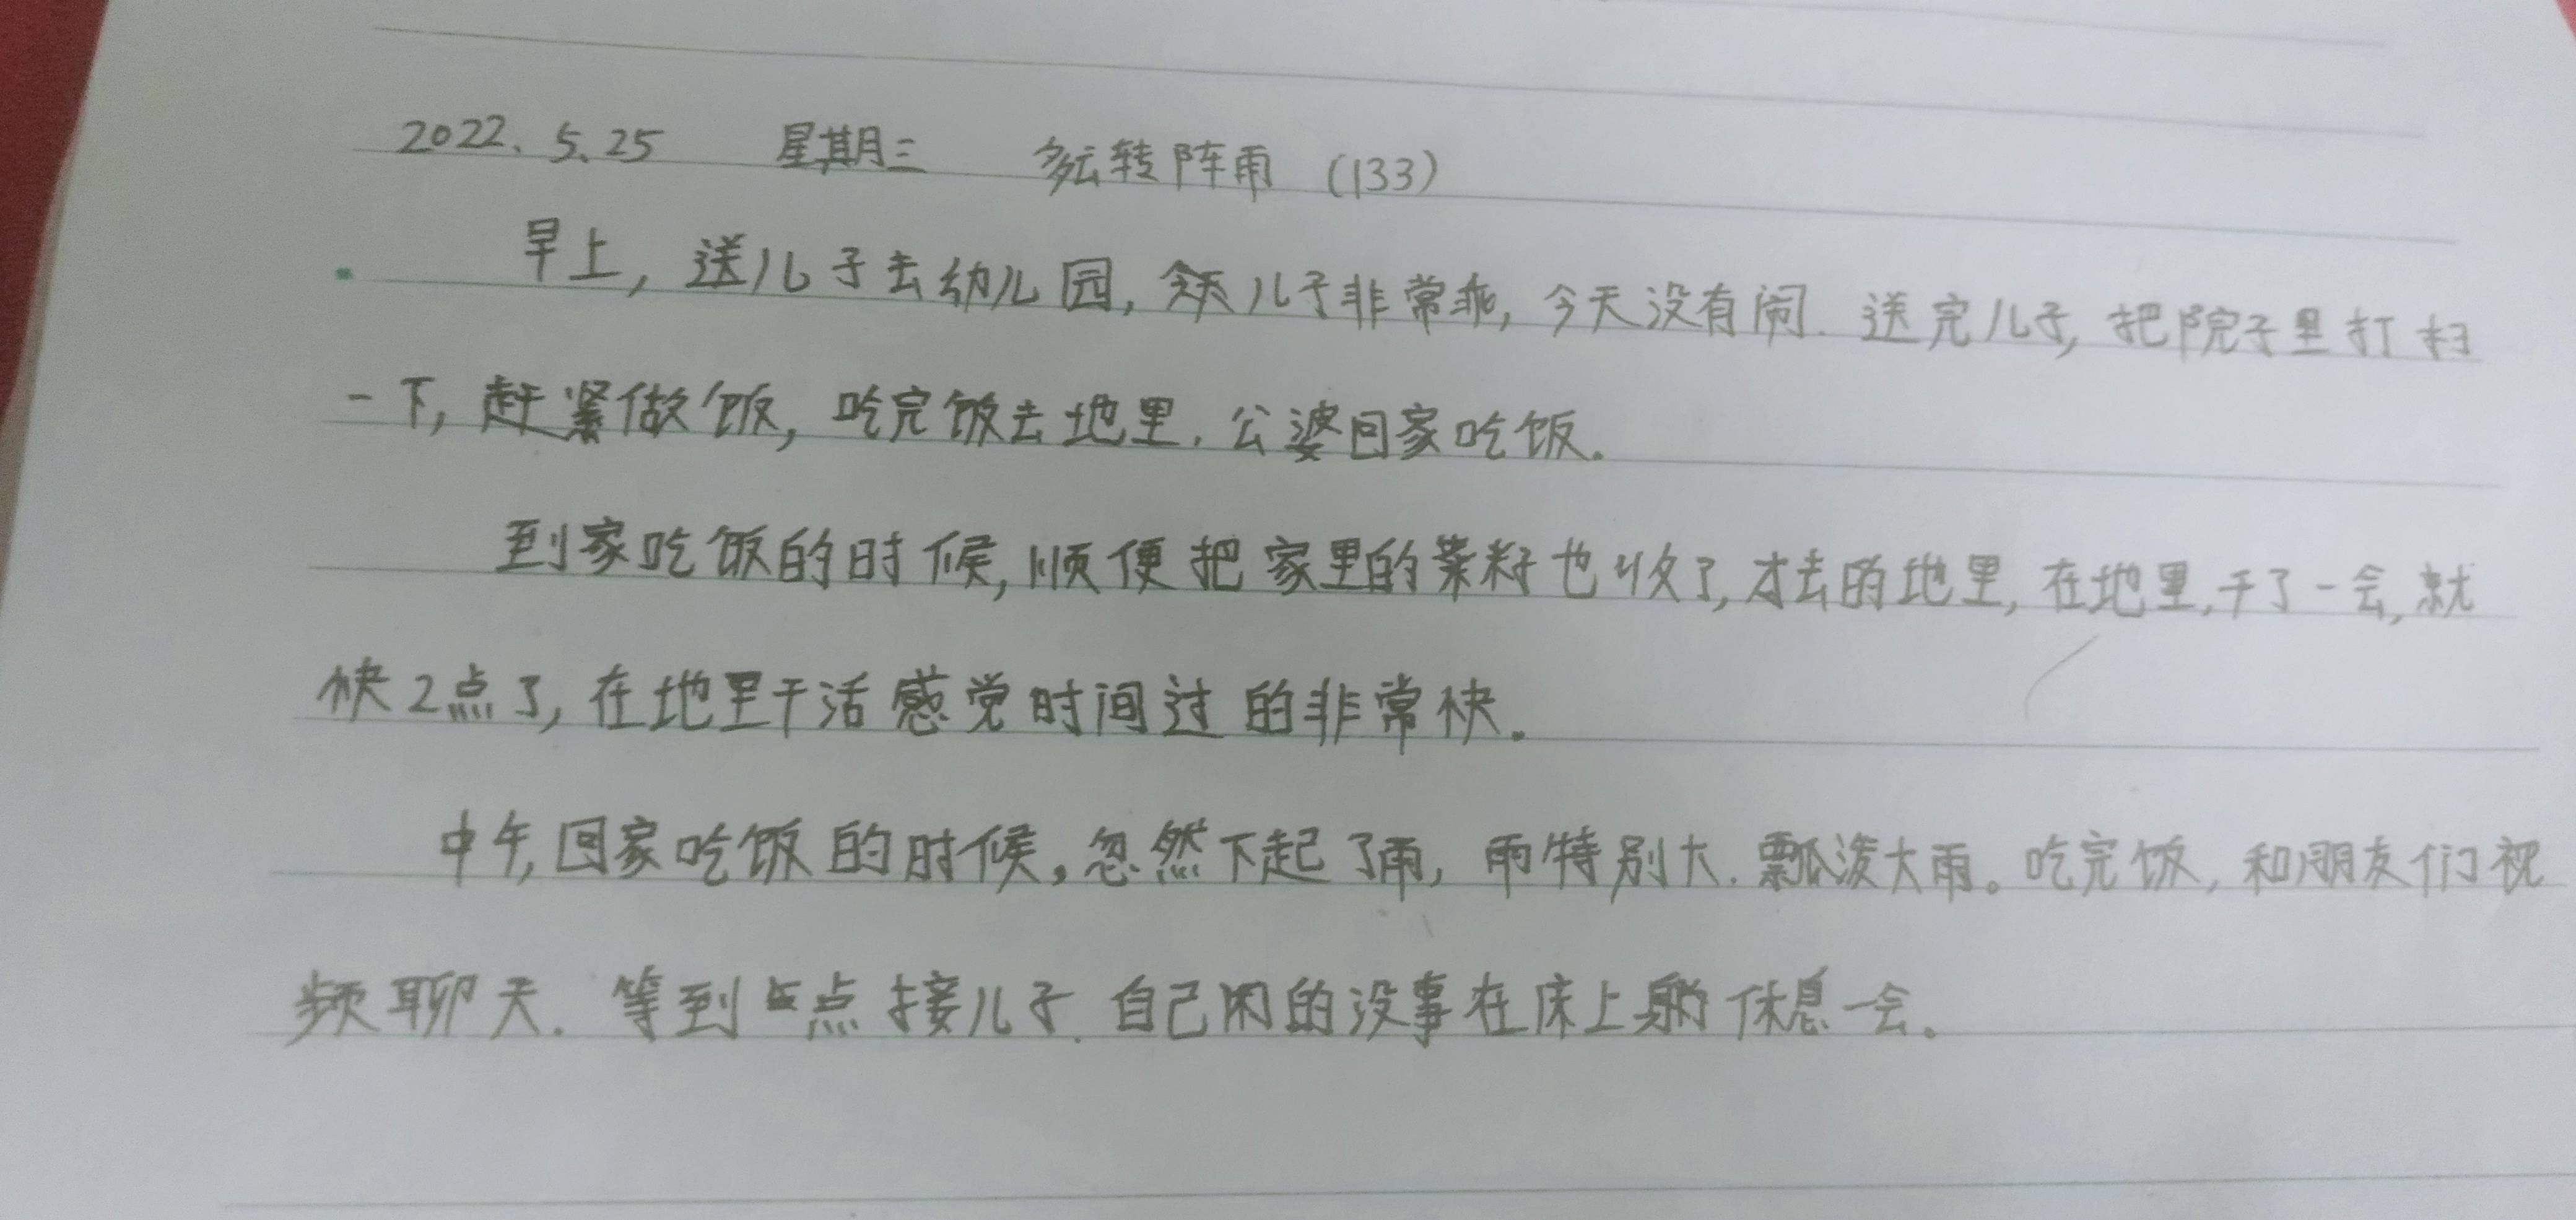 2022.5.25 星期三 多云转阵雨 (133)
早上,送儿子去幼儿园,今天儿子非常乖,今天没有闹.送完儿子,把院子里打扫
一下,赶紧做饭,吃完饭去地里.公婆回家吃饭.
到家吃饭的时候,顺便把家里的菜籽也收了,才去的地里,在地里,干了一会,就
快2点了,在地里干活感觉时间过的非常快.
中午,回家吃饭的时候,忽然下起了雨,雨特别大.瓢泼大雨。吃完饭,和朋友们视
频聊天.等到点接儿子.自己闲的没事在床上躺休息一会。